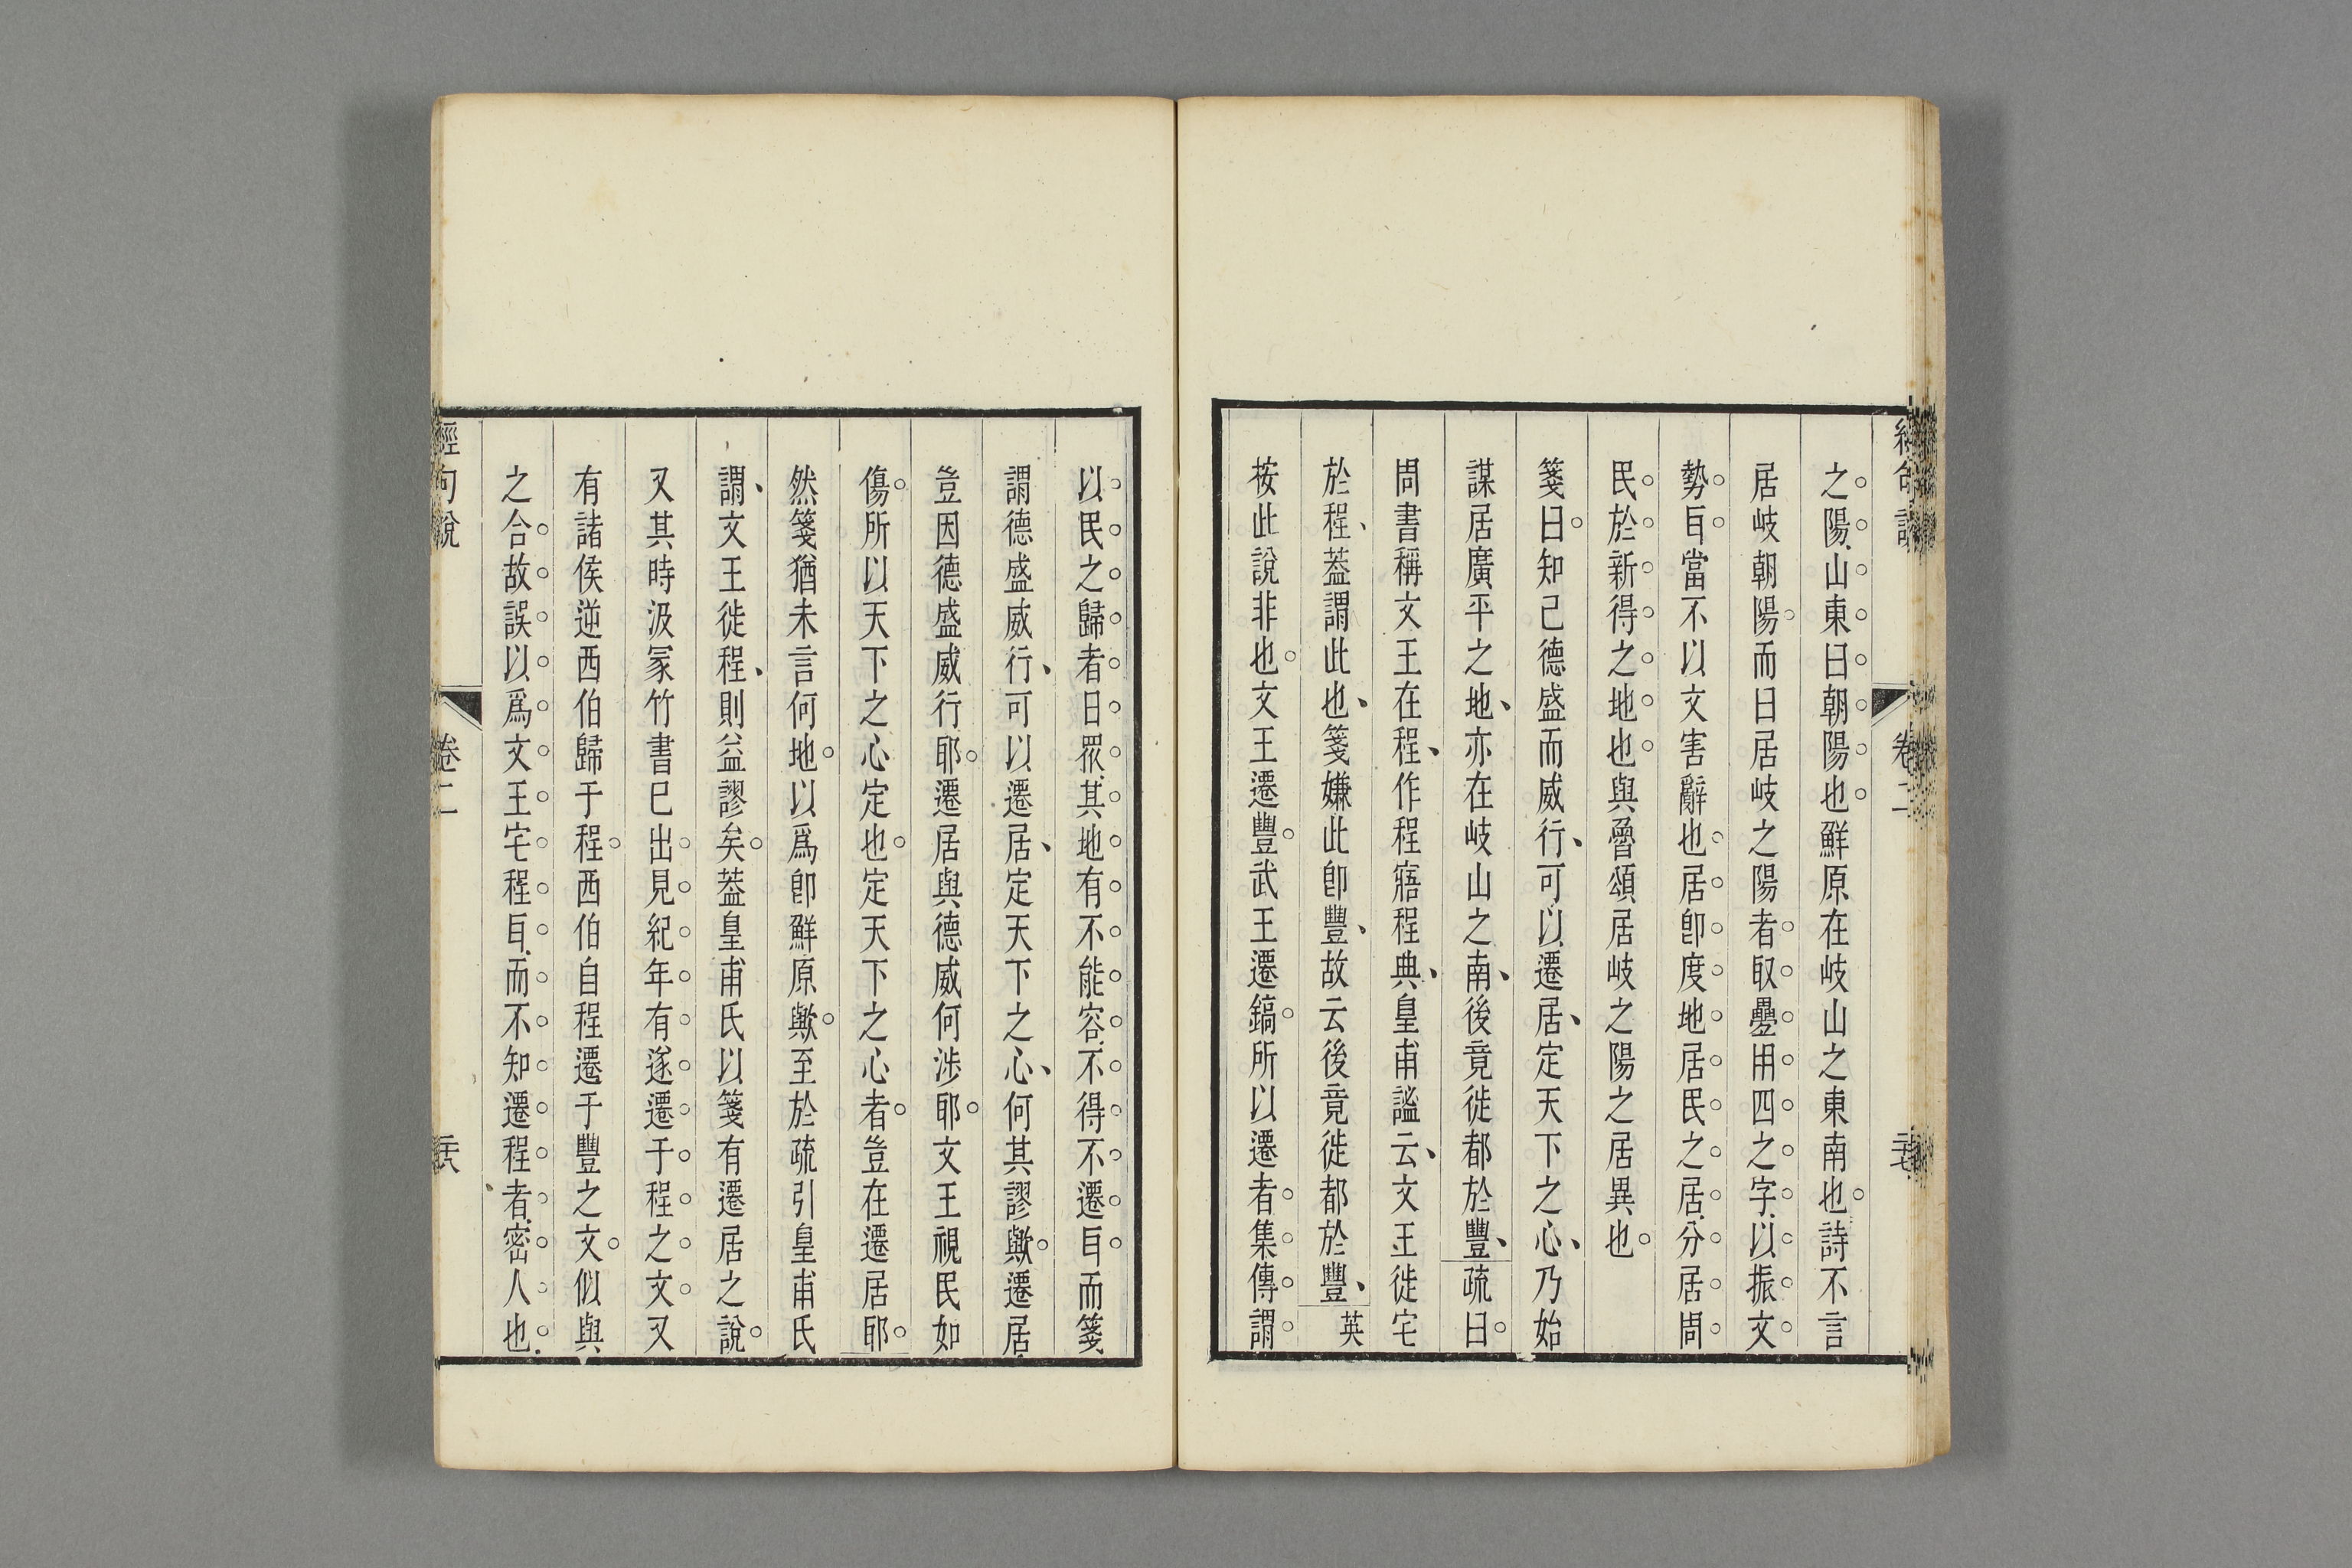 之陽山東曰朝陽也鮮原在岐山之東南也詩不言
居岐朝陽而曰居岐之陽者取疊用四之字以振文
勢耳當不以文害辭也居卽度地居民之居分居周
民於新得之地也與魯頌居岐之陽之居異也
箋曰知己德盛而威行可以遷居定天下之心乃始
謀居廣平之地亦在岐山之南後竟徙都於豐疏曰
周書稱文王在程作程寤程典皇甫謐云文王徙宅
於程蓋謂此也箋嫌此卽豐故云後竟徙都於豐英
按此說非也文王遷豐武王遷鎬所以遷者集傳謂
以民之歸者日眾其地有不能容不得不遷耳而箋
謂德盛威行可以遷居定天下之心何其謬歟遷居
豈因德盛威行耶遷居與德威何涉耶文王視民如
傷所以天下之心定也定天下之心者豈在遷居耶
然箋猶未言何地以爲卽鮮原歟至於疏引皇甫氏
謂文王徙程則益謬矣蓋皇甫氏以箋有遷居之說
又其時汲冢竹書已出見紀年有遂遷于程之文又
有諸侯逆西伯歸于程西伯自程遷于豐之文似與
之合故誤以爲文王宅程耳而不知遷程者密人也
經句說 卷二